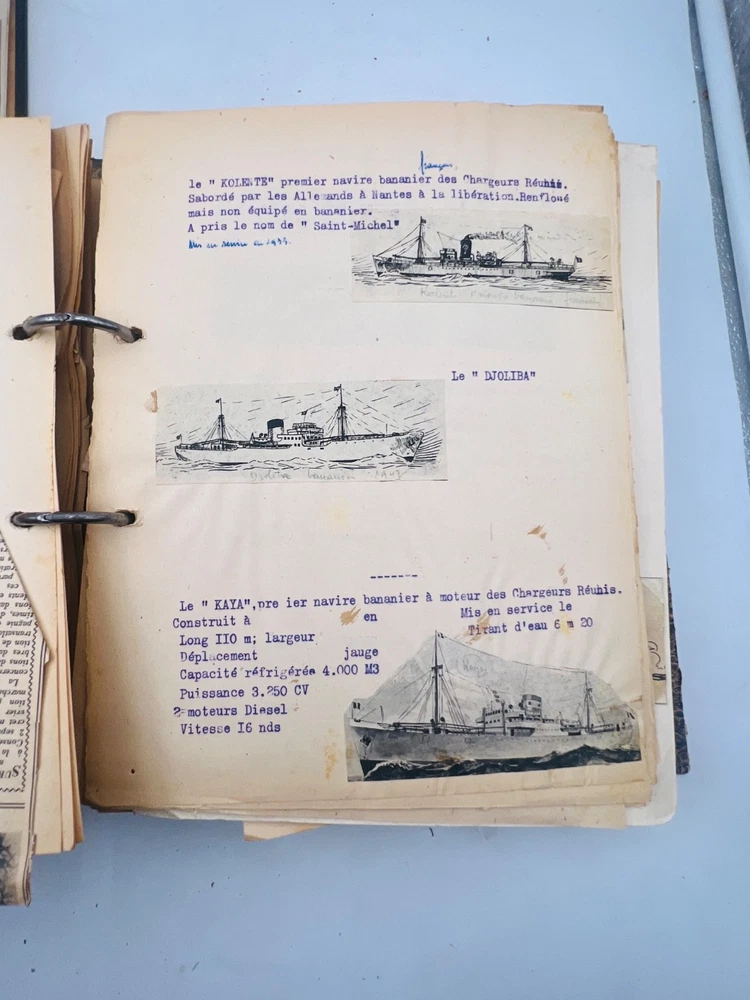 français
le " KOLENTE" premier navire bananier des Chargeurs Réunis.
Sabordé par les Allemands à Nantes à la libération.Renfloué
mais non équipé en bananier.
A pris le nom de " Saint-Michel"
Mis en service en
Le " DJOLIBA"
Djoliba bananier
-------
Le " KAYA",pre ier navire bananier à moteur des Chargeurs Réunis.
Construit à en Mis en service le
Long IIO m; largeur Tirant d'eau 6 m 20
Déplacement jauge
Capacité réfrigérée 4.000 M3
Puissance 3.250 CV
2 moteurs Diesel
Vitesse I6 nds